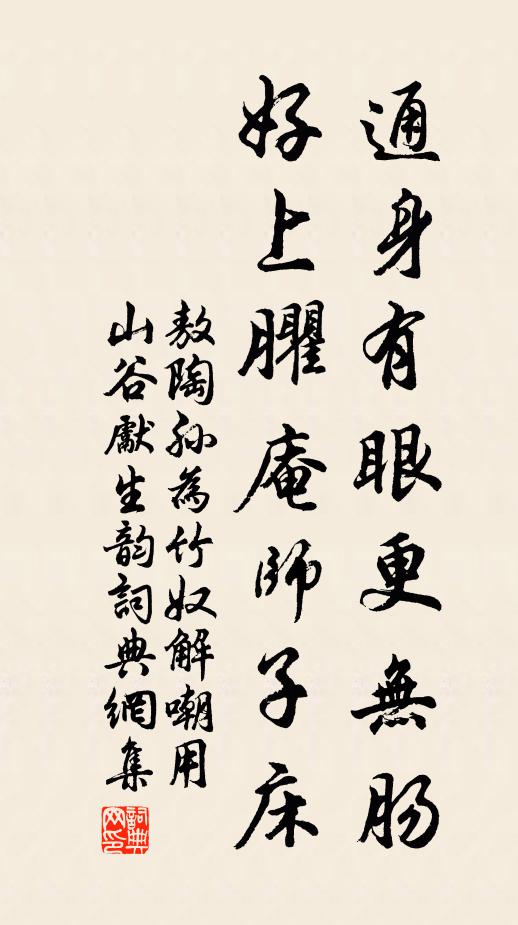 通身有眼更無肠
好上臞庵師子床
敖陶孙為竹奴解嘲用
山谷獻生韵詞典網集
詞典
网印